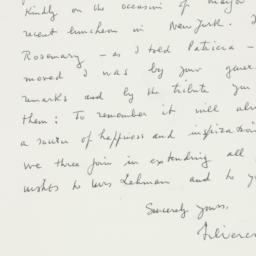 kindly on the occasion of
recent luncheon in New York.
Rosemary - as I told Patricia -
moved I was by your gener
remarks and by the tribute you
them: To remember it will alw
a source of happiness and inspiration
we three join in extending all
wishes to Mrs Lehman and to yo
Sincerely yours,